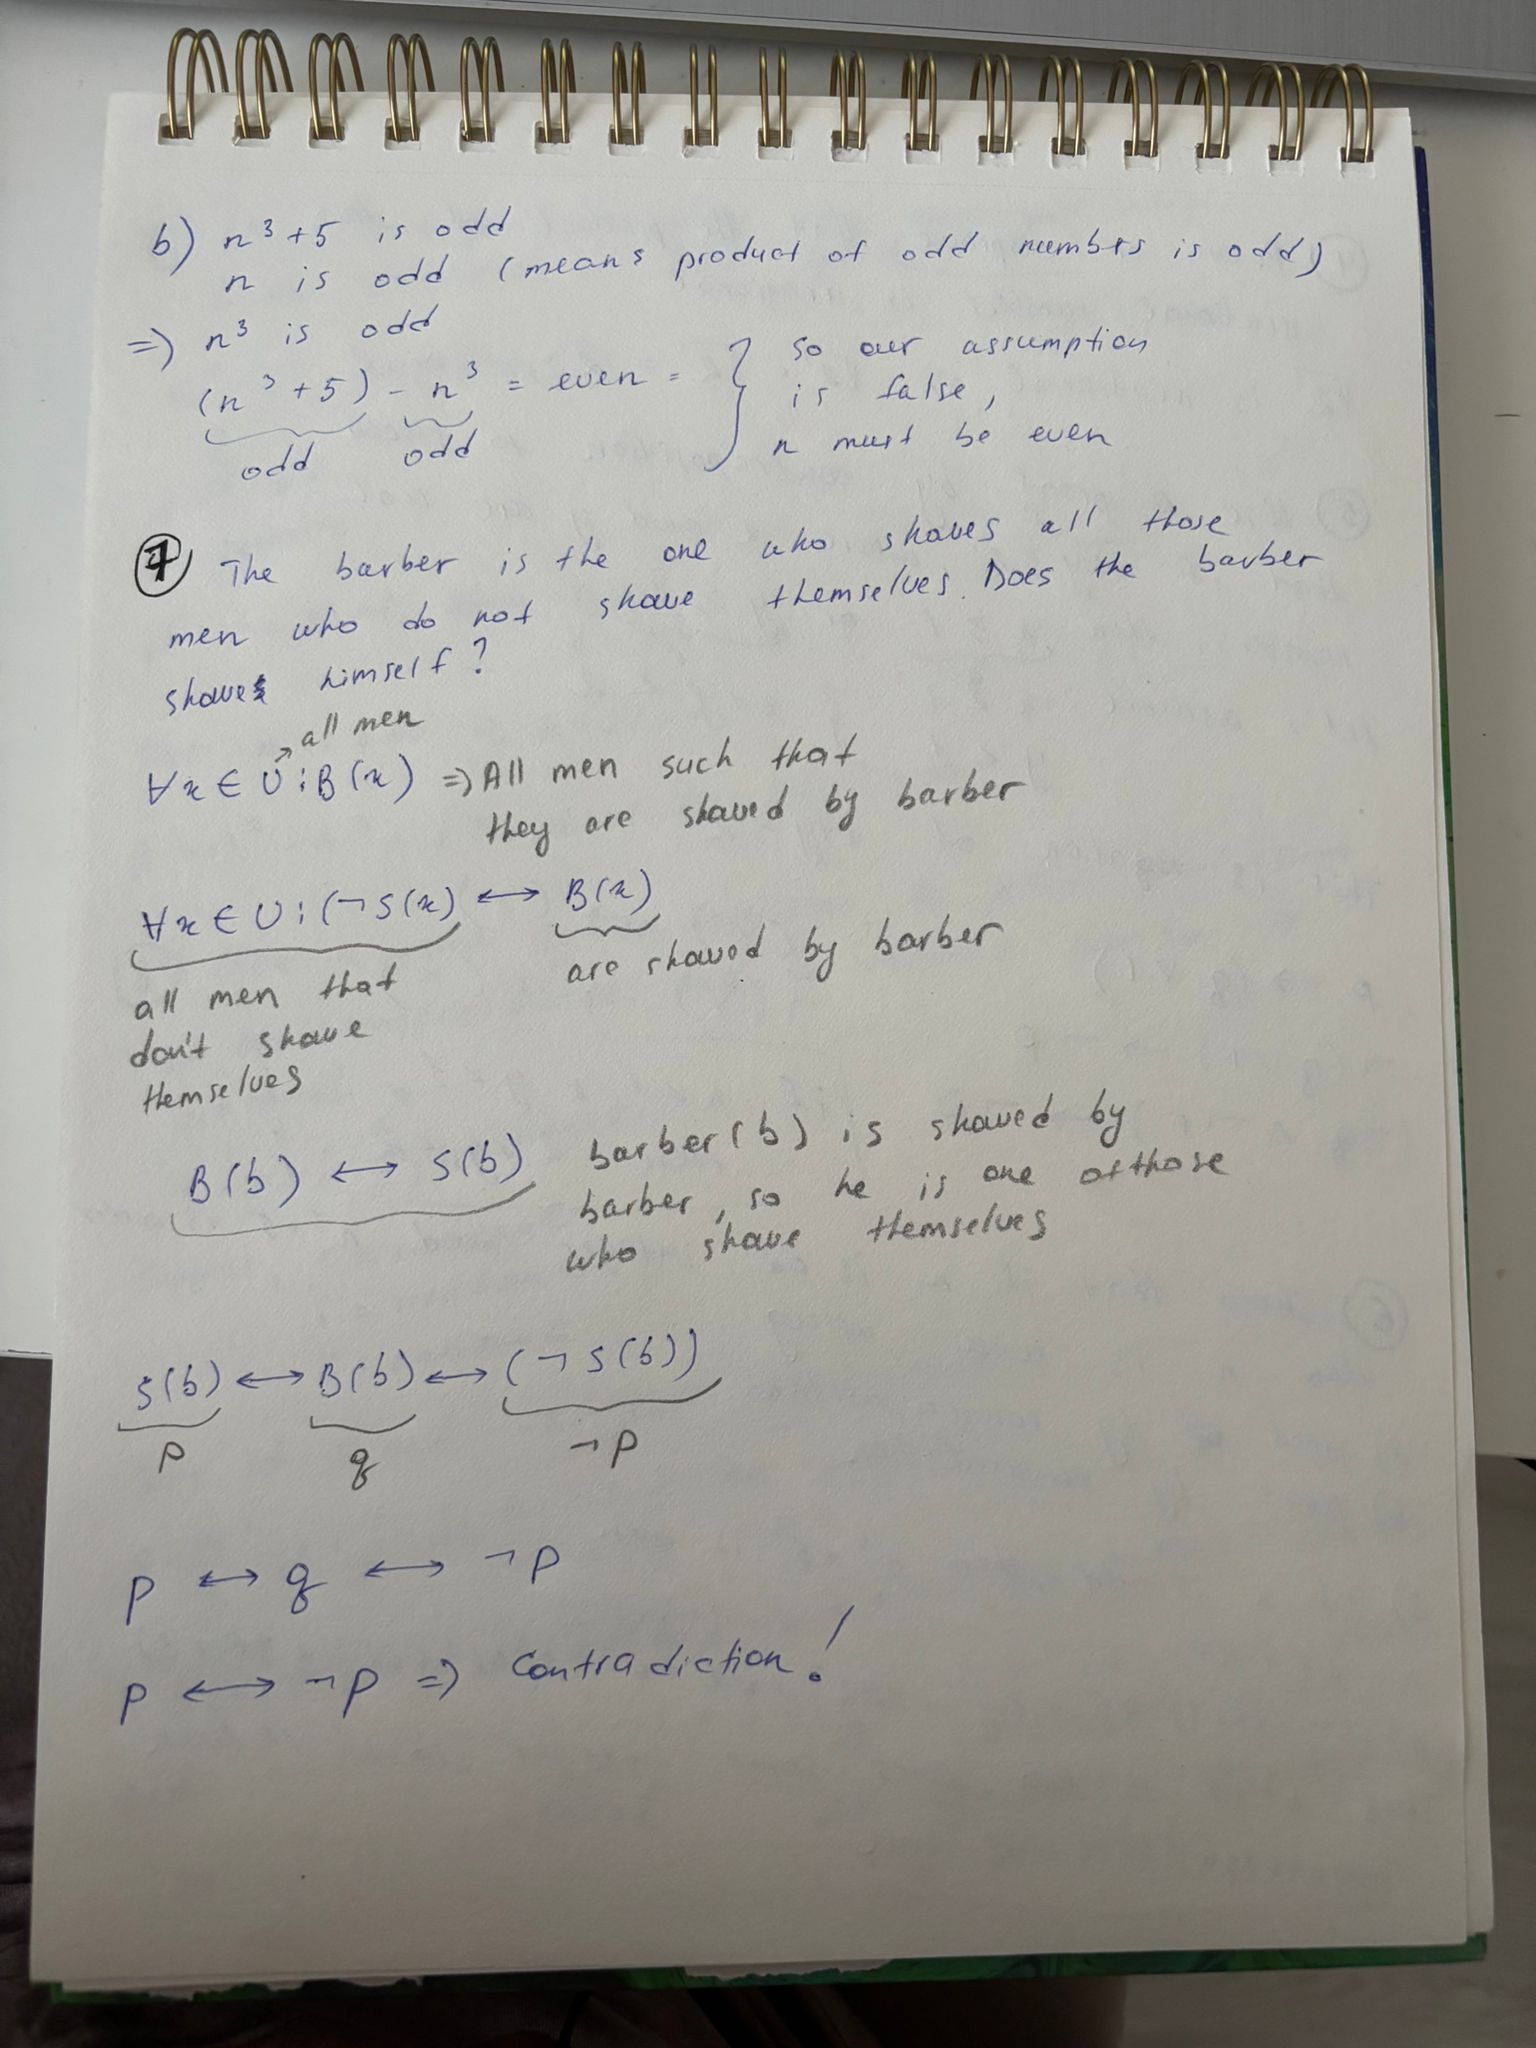 b) n³+5 is odd
n is odd (means product of odd numbrs is odd)
=> n³ is odd
(n³+5) - n³ = even =
odd odd
} so our assumption
is false,
n must be even
7 The barber is the one who shaves all those
men who do not shave themselves. Does the barber
shave himself?
→ all men
∀x ∈ U : B(x) => All men such that
they are shaved by barber
∀x ∈ U : (¬S(x) ↔ B(x)
all men that
don't shave
themselves
are shaved by barber
B(b) ↔ S(b)
barber(b) is shaved by
barber, so he is one of those
who shave themselves
S(b) ↔ B(b) ↔ (¬S(b))
p q ¬p
p ↔ q ↔ ¬p
p ↔ ¬p => Contradiction!